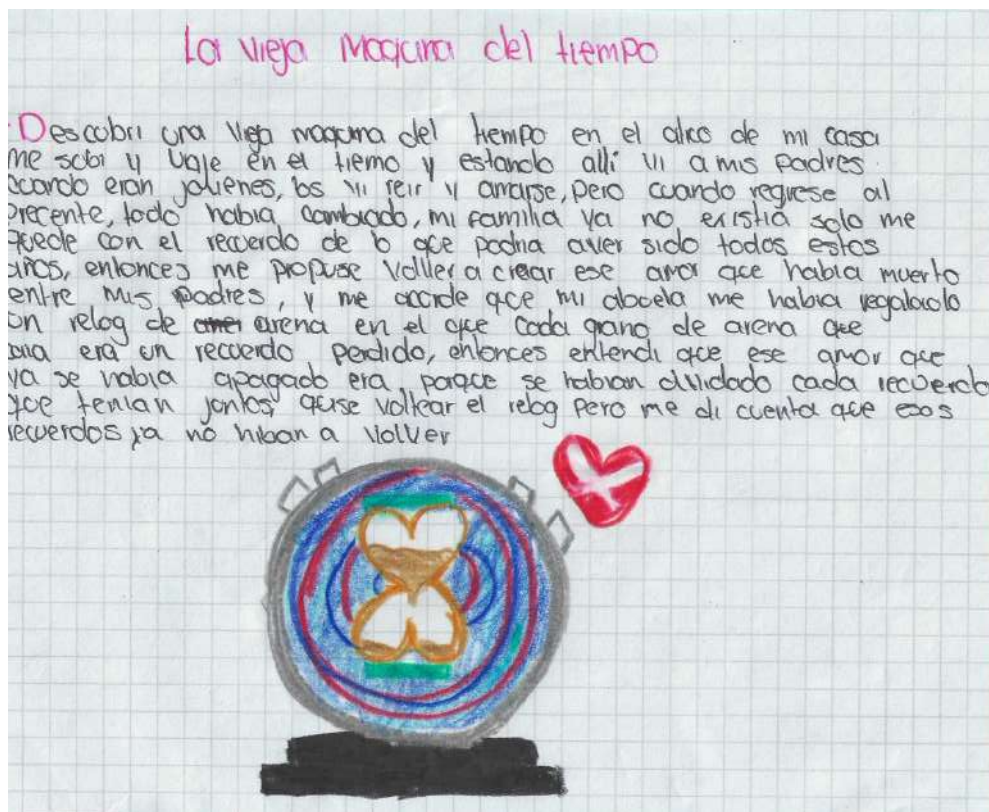 La vieja Maquina del tiempo
Descubri una vieja maquina del tiempo en el atico de mi casa
me subi y viaje en el tiemo y estando allí vi a mis padres
cuando eran jovenes, los vi reir y amarse, pero cuando regrese al
precente, todo habia cambiado, mi familia ya no existia solo me
quede con el recuerdo de lo que podria aver sido todos estos
años, entonces me propuse volver a crear ese amor que habia muerto
entre mis padres, y me acorde que mi abuela me habia regalado
un relog de arena en el que cada grano de arena que
caia era un recuerdo perdido, entonces entendi que ese amor que
ya se habia apagado era, porque se habian olvidado cada recuerdo
que tenian juntos, quise voltear el relog pero me di cuenta que esos
recuerdos ya no hiban a volver